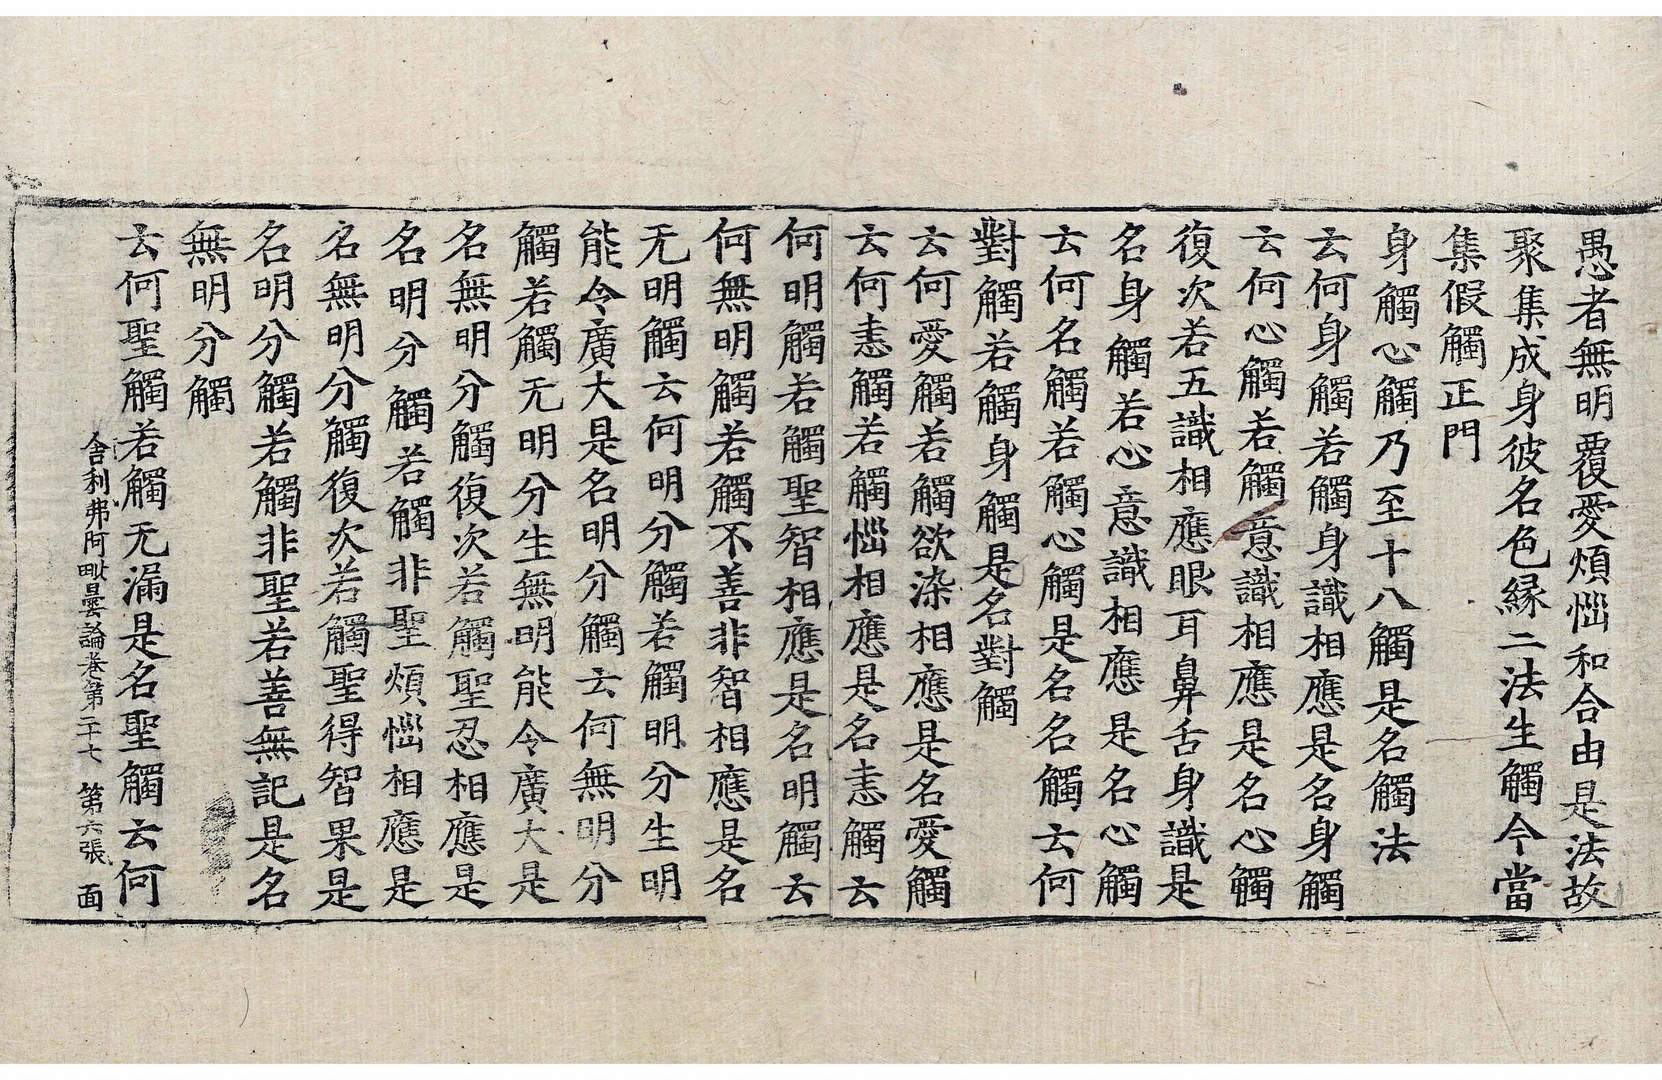 愚者無明覆愛煩惱和合由是法故
聚集成身彼名色緣二法生觸今當
集假觸正門
身觸心觸乃至十八觸是名觸法
云何身觸若觸身識相應是名身觸
云何心觸若觸意識相應是名心觸
復次若五識相應眼耳鼻舌身識是
名身觸若心意識相應是名心觸
云何名觸若觸心觸是名名觸云何
對觸若觸身觸是名對觸
云何愛觸若觸欲染相應是名愛觸
云何恚觸若觸惱相應是名恚觸云
何明觸若觸聖智相應是名明觸云
何無明觸若觸不善非智相應是名
无明觸云何明分觸若觸明分生明
能令廣大是名明分觸云何無明分
觸若觸无明分生無明能令廣大是
名無明分觸復次若觸聖忍相應是
名明分觸若觸非聖煩惱相應是
名無明分觸復次若觸聖得智果是
名明分觸若觸非聖若善無記是名
無明分觸
云何聖觸若觸无漏是名聖觸云何
舍利弗阿毗曇論卷第二十七 第六張 面